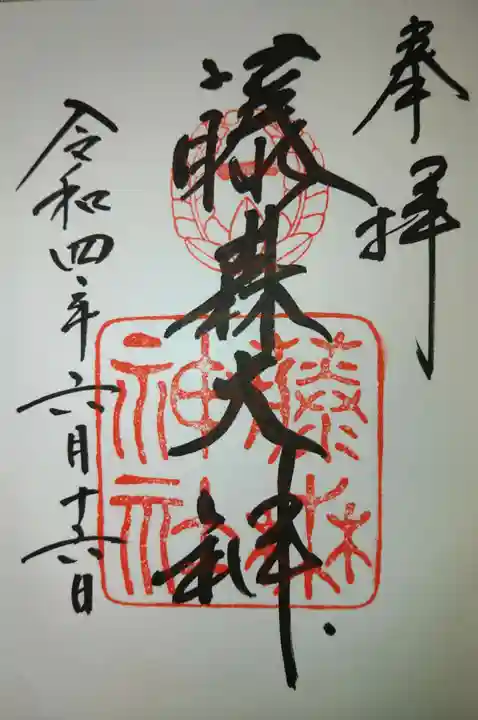 奉拝
藤森大神
令和四年六月十六日
藤森
神社